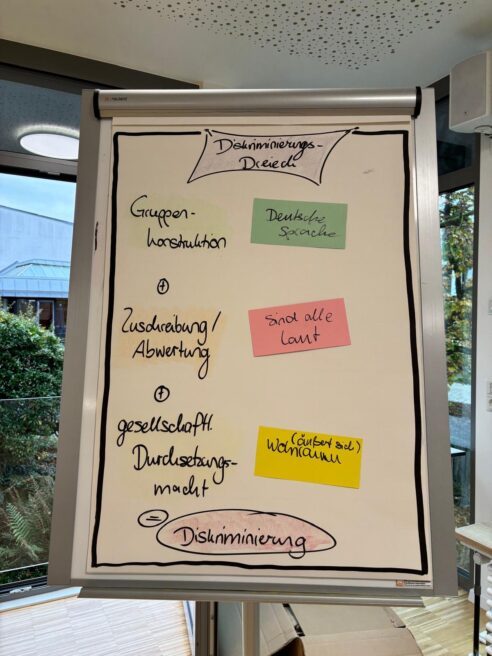 Diskriminierungs-
Dreieck
Gruppen-
konstruktion
Deutsche
Sprache
+
Zuschreibung/
Abwertung
sind alle
laut
+
gesellschaftl.
Durchsetzungs-
macht
(äußert sich)
Wohnraum
=
Diskriminierung